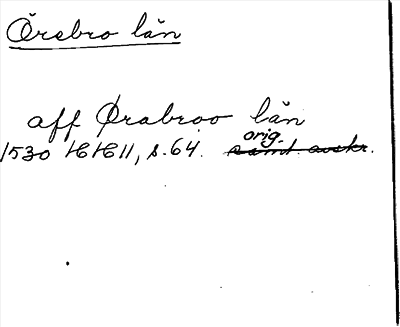 Örebro län
aff Ørabroo län
1530 HH 11, s. 64. orig. samt. avskr.